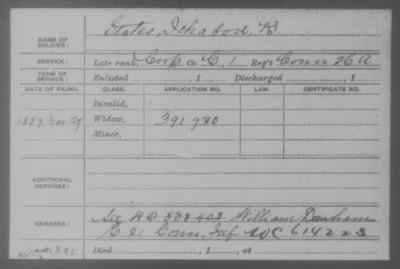 NAME OF SOLDIER: States, Ichabod B
SERVICE: Late rank, Corp Co. C, 1 Reg't Conn H A
TERM OF SERVICE: Enlisted , 1 Discharged , 1
DATE OF FILING. CLASS. APPLICATION NO. LAW. CERTIFICATE NO.
Invalid,
1889 Mar. 29 Widow, 391 930
Minor,
ADDITIONAL SERVICES:
REMARKS: See William Dunham
C 21 Conn, Inf WC 614223
Died , 1 , at